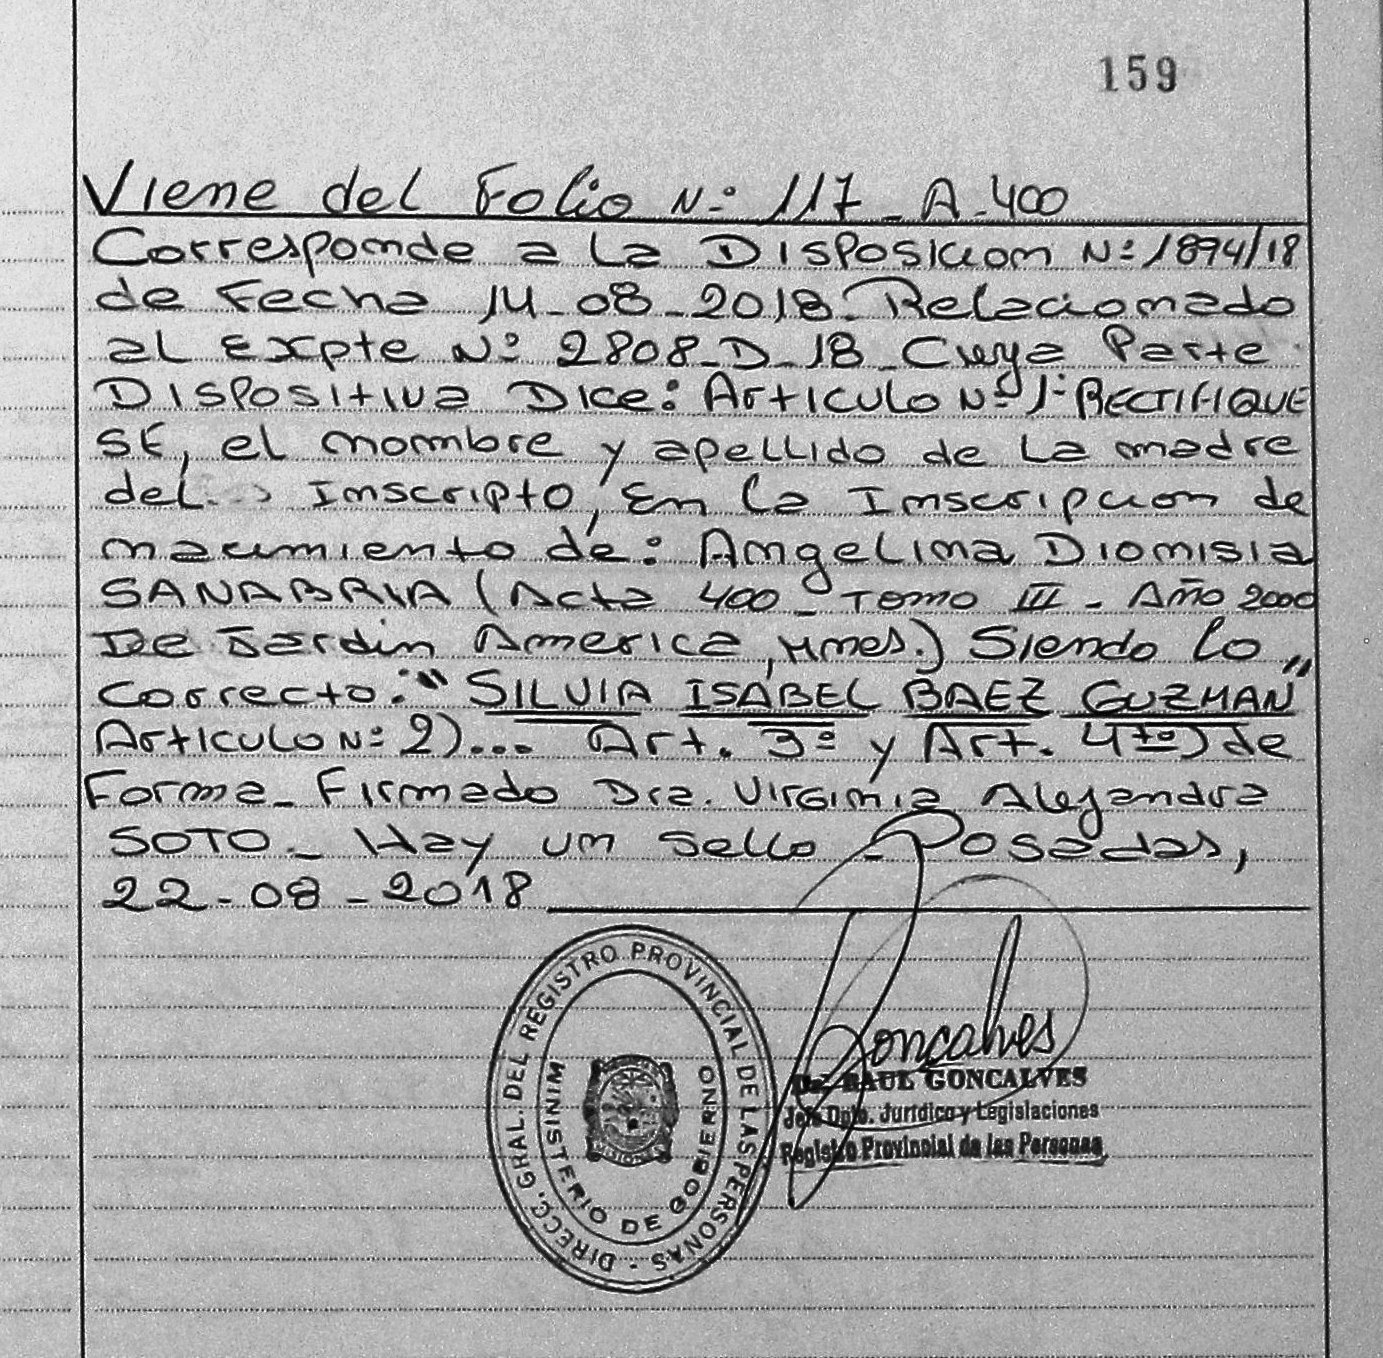 159
Viene del Folio Nº 117 - A - 400
Corresponde a La Disposicion Nº 1894/18
de Fecha 14-08-2018. Relacionado
al Expte Nº 2808-D-18 Cuya Parte
Dispositiva Dice: Articulo Nº 1º RECTIFIQUE
SE, el nombre y apellido de La madre
del... Inscripto, En la Inscripcion de
nacimiento de: Angelina Dionisia
SANABRIA (Acta 400 - Tomo III - Año 2000
De Jardin America, Mnes.) Siendo lo
correcto: "SILVIA ISABEL BAEZ GUZMAN"
Articulo Nº 2)... Art. 3º y Art. 4to) de
Forma - Firmado Dra. Virginia Alejandra
SOTO - Hay un sello - Posadas,
22-08-2018
DIRECC. GRAL. DEL REGISTRO PROVINCIAL DE LAS PERSONAS.-
MINISTERIO DE GOBIERNO
Goncalves
Dr. RAUL GONCALVES
Jefe Dpto. Jurídico y Legislaciones
Registro Provincial de las Personas